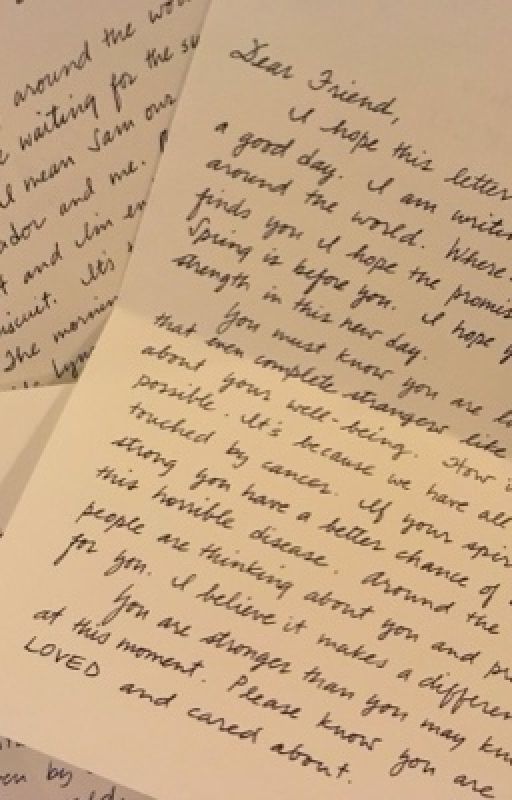 around the wo
waiting for the su
I mean Sam our
ador and me.
and I'm en
iscuit. It's
The mornin
Dear Friend,
I hope this letter
a good day. I am writin
around the world. Where
finds you I hope the promis
Spring is before you. I hope y
strength in this new day.
You must know you are lo
that even complete strangers like
about your well-being. How i
possible. It's because we have all
touched by cancer. If your spir
strong you have a better chance of
this horrible disease. Around the
people are thinking about you and pr
for you. I believe it makes a differen
You are stronger than you may kn
at this moment. Please know you are
LOVED and cared about.
en by